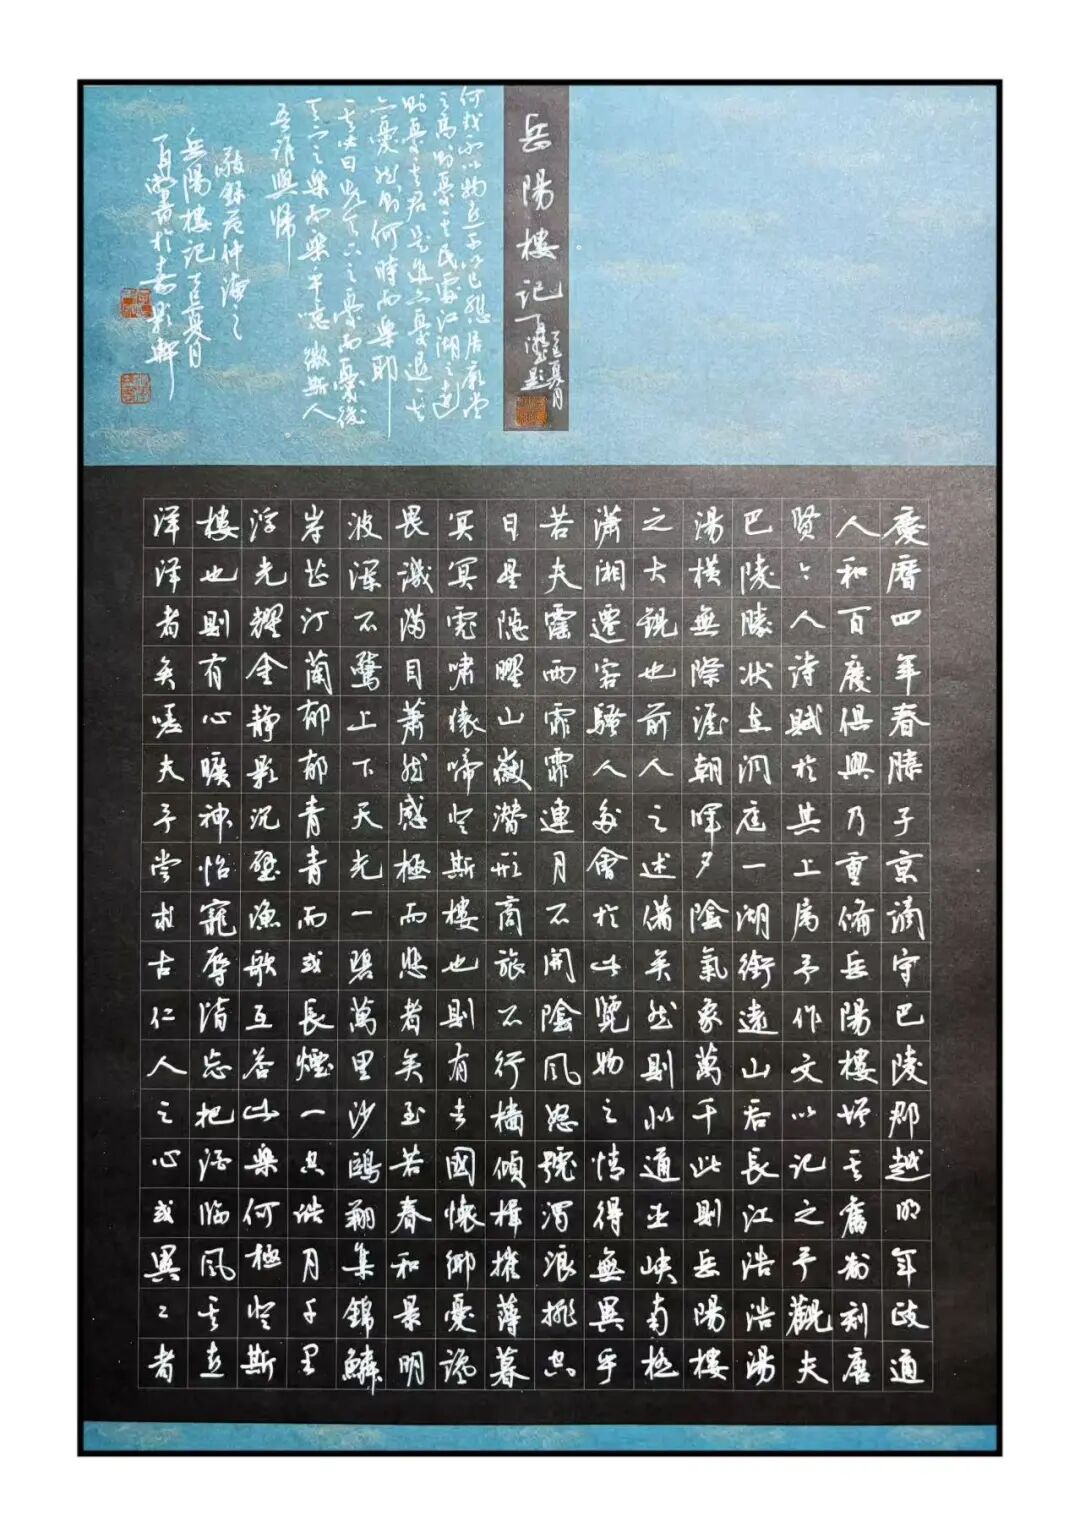 岳陽樓記
乙巳夏月
慶曆四年春滕子京謫守巴陵郡越明年政通
人和百廢俱興乃重脩岳陽樓增其舊制刻唐
賢々人詩賦於其上屬予作文以記之予觀夫
巴陵勝狀在洞庭一湖銜遠山吞長江浩浩湯
湯橫無際涯朝暉夕陰氣象萬千此則岳陽樓
之大觀也前人之述備矣然則北通巫峽南極
瀟湘遷客騷人多會於此覽物之情得無異乎
若夫霪雨霏霏連月不開陰風怒號濁浪排空
日星隱曜山嶽潛形商旅不行檣傾楫摧薄暮
冥冥虎嘯猿啼登斯樓也則有去國懷鄉憂讒
畏譏滿目蕭然感極而悲者矣至若春和景明
波瀾不驚上下天光一碧萬里沙鷗翔集錦鱗
岸芷汀蘭郁郁青青而或長煙一空皓月千里
浮光耀金靜影沉璧漁歌互答此樂何極登斯
樓也則有心曠神怡寵辱皆忘把酒臨風其喜
洋洋者矣嗟夫予嘗求古仁人之心或異二者
何哉不以物喜不以己悲居廟堂
之高則憂其民處江湖之遠
則憂其君是進亦憂退
亦憂然則何時而樂耶
其必曰先天下之憂而憂後
天下之樂而樂乎噫微斯人
吾誰與歸
敬錄范仲淹之
岳陽樓記乙巳夏月